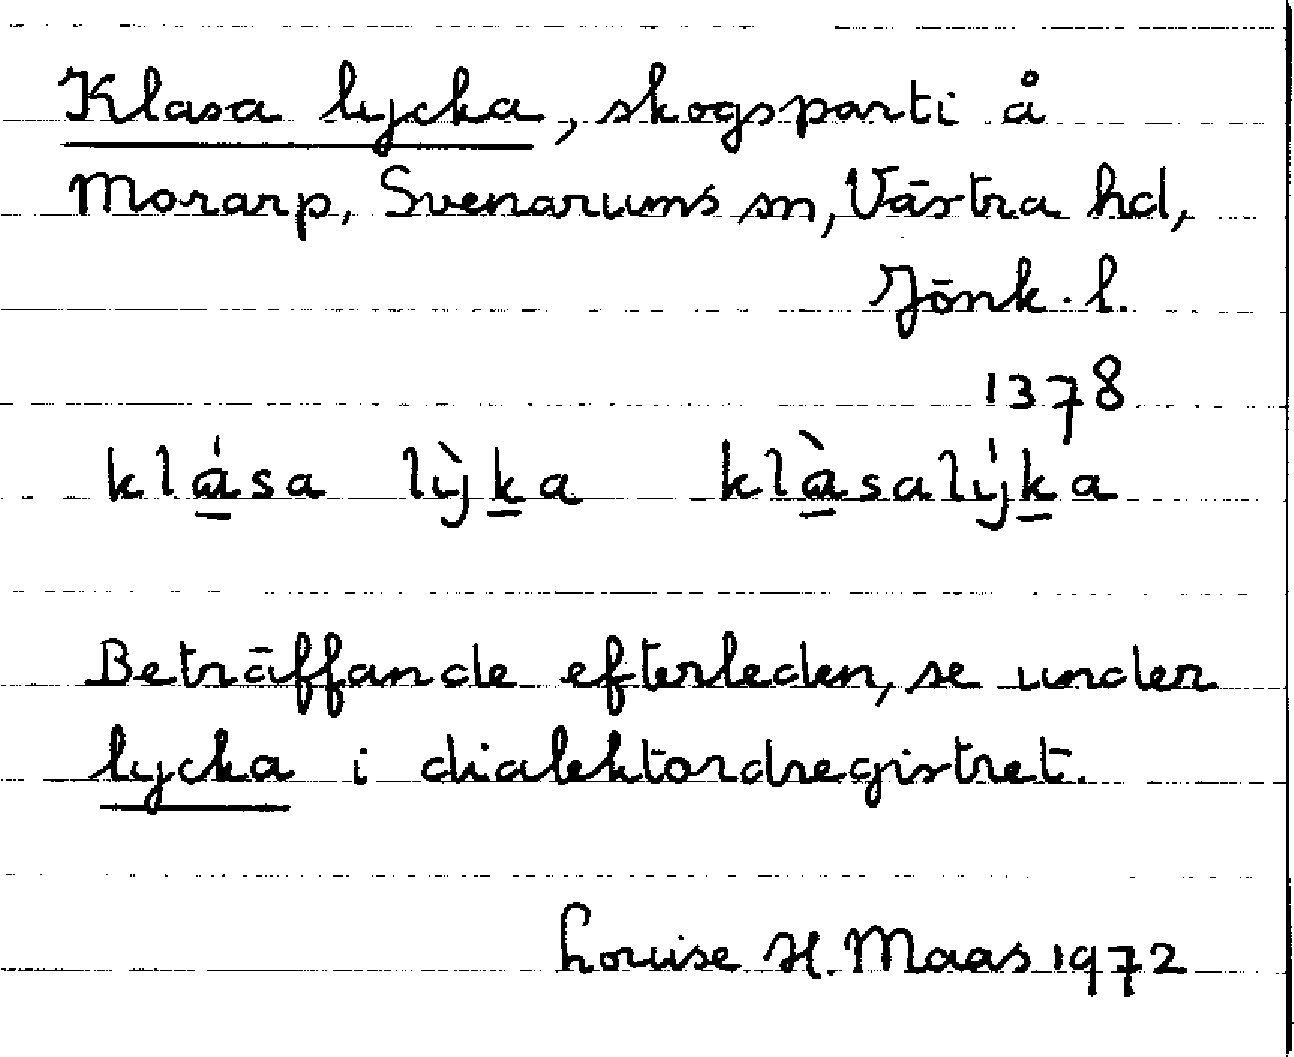 Klasa lycka, skogsparti å
Morarp, Svenarums sn, Västra hd,
Jönk. l.
1378
klá̱sa lỳḵa klà̱salýḵa
Beträffande efterleden, se under
lycka i dialektordregistret.
Louise H. Maas 1972